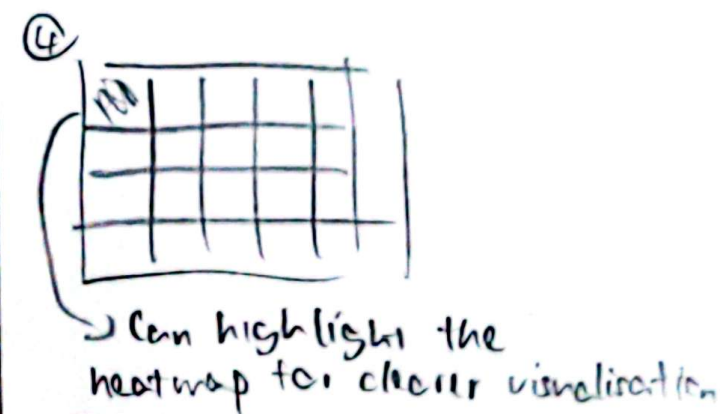 ④
Can highlight the
heatmap for clearer visualisation